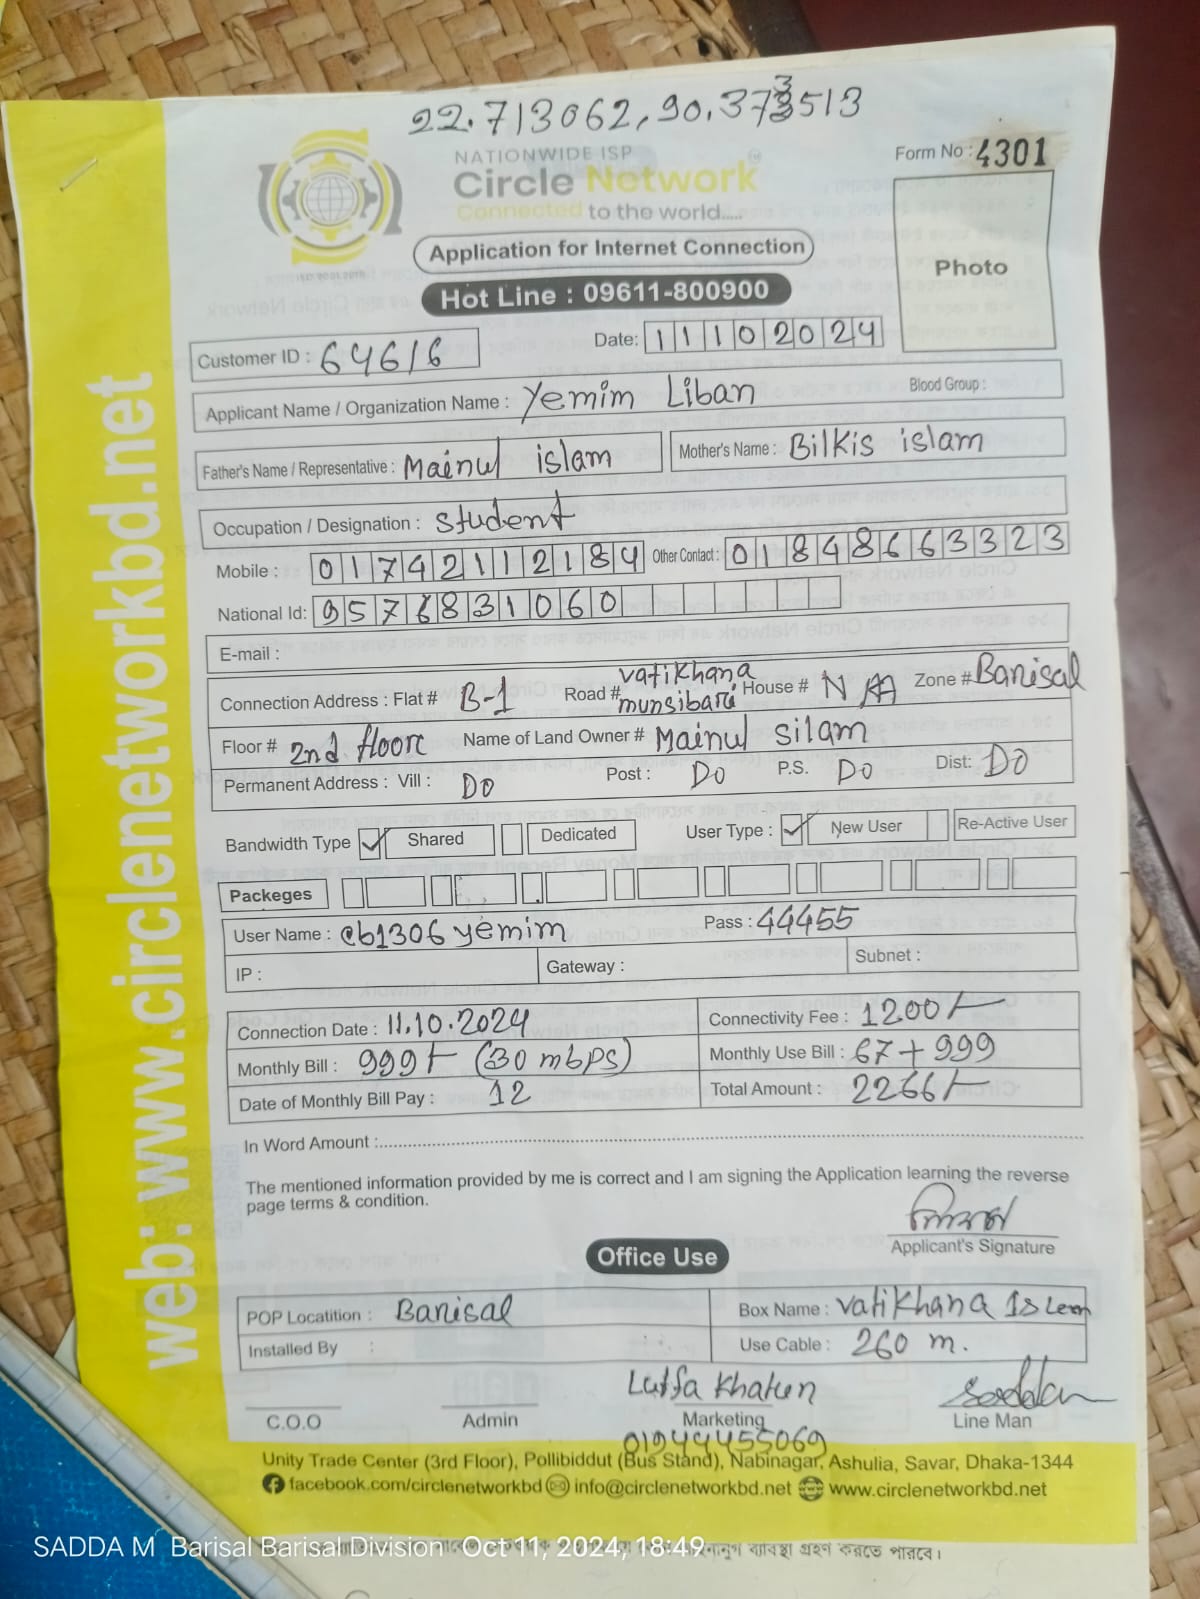 22.713062, 90.373513
NATIONWIDE ISP
Circle Network
Connected to the world.....
Form No : 4301
Photo
Application for Internet Connection
Hot Line : 09611-800900
Customer ID : 64616
Date: 11102024
Applicant Name / Organization Name : Yemim Liban
Blood Group :
Father's Name / Representative : Mainul islam
Mother's Name : Bilkis islam
Occupation / Designation : student
Mobile : 01742112184 Other Contact : 01848663323
National Id: 9576831060
E-mail :
Connection Address : Flat # B-1 Road # vatikhana munsibari House # NA Zone # Barisal
Floor # 2nd floor Name of Land Owner # Mainul silam
Permanent Address : Vill : Do Post : Do P.S. Do Dist: Do
Bandwidth Type ✓ Shared Dedicated User Type : ✓ New User Re-Active User
Packeges
User Name : cb1306yemim Pass : 44455
IP : Gateway : Subnet :
Connection Date : 11.10.2024 Connectivity Fee : 1200/-
Monthly Bill : 999/- (30 mbps) Monthly Use Bill : 67 + 999
Date of Monthly Bill Pay : 12 Total Amount : 2266/-
In Word Amount :
The mentioned information provided by me is correct and I am signing the Application learning the reverse
page terms & condition.
Applicant's Signature
Office Use
POP Locatition : Barisal Box Name : vatikhana
Installed By : Use Cable : 260 m.
Lutfa Khatun
C.O.O Admin Marketing Line Man
01944455069
Unity Trade Center (3rd Floor), Pollibiddut (Bus Stand), Nabinagar, Ashulia, Savar, Dhaka-1344
facebook.com/circlenetworkbd info@circlenetworkbd.net www.circlenetworkbd.net
web: www.circlenetworkbd.net
SADDA M Barisal Barisal Division Oct 11, 2024, 18:49
ব্যবস্থা গ্রহণ করতে পারবে।